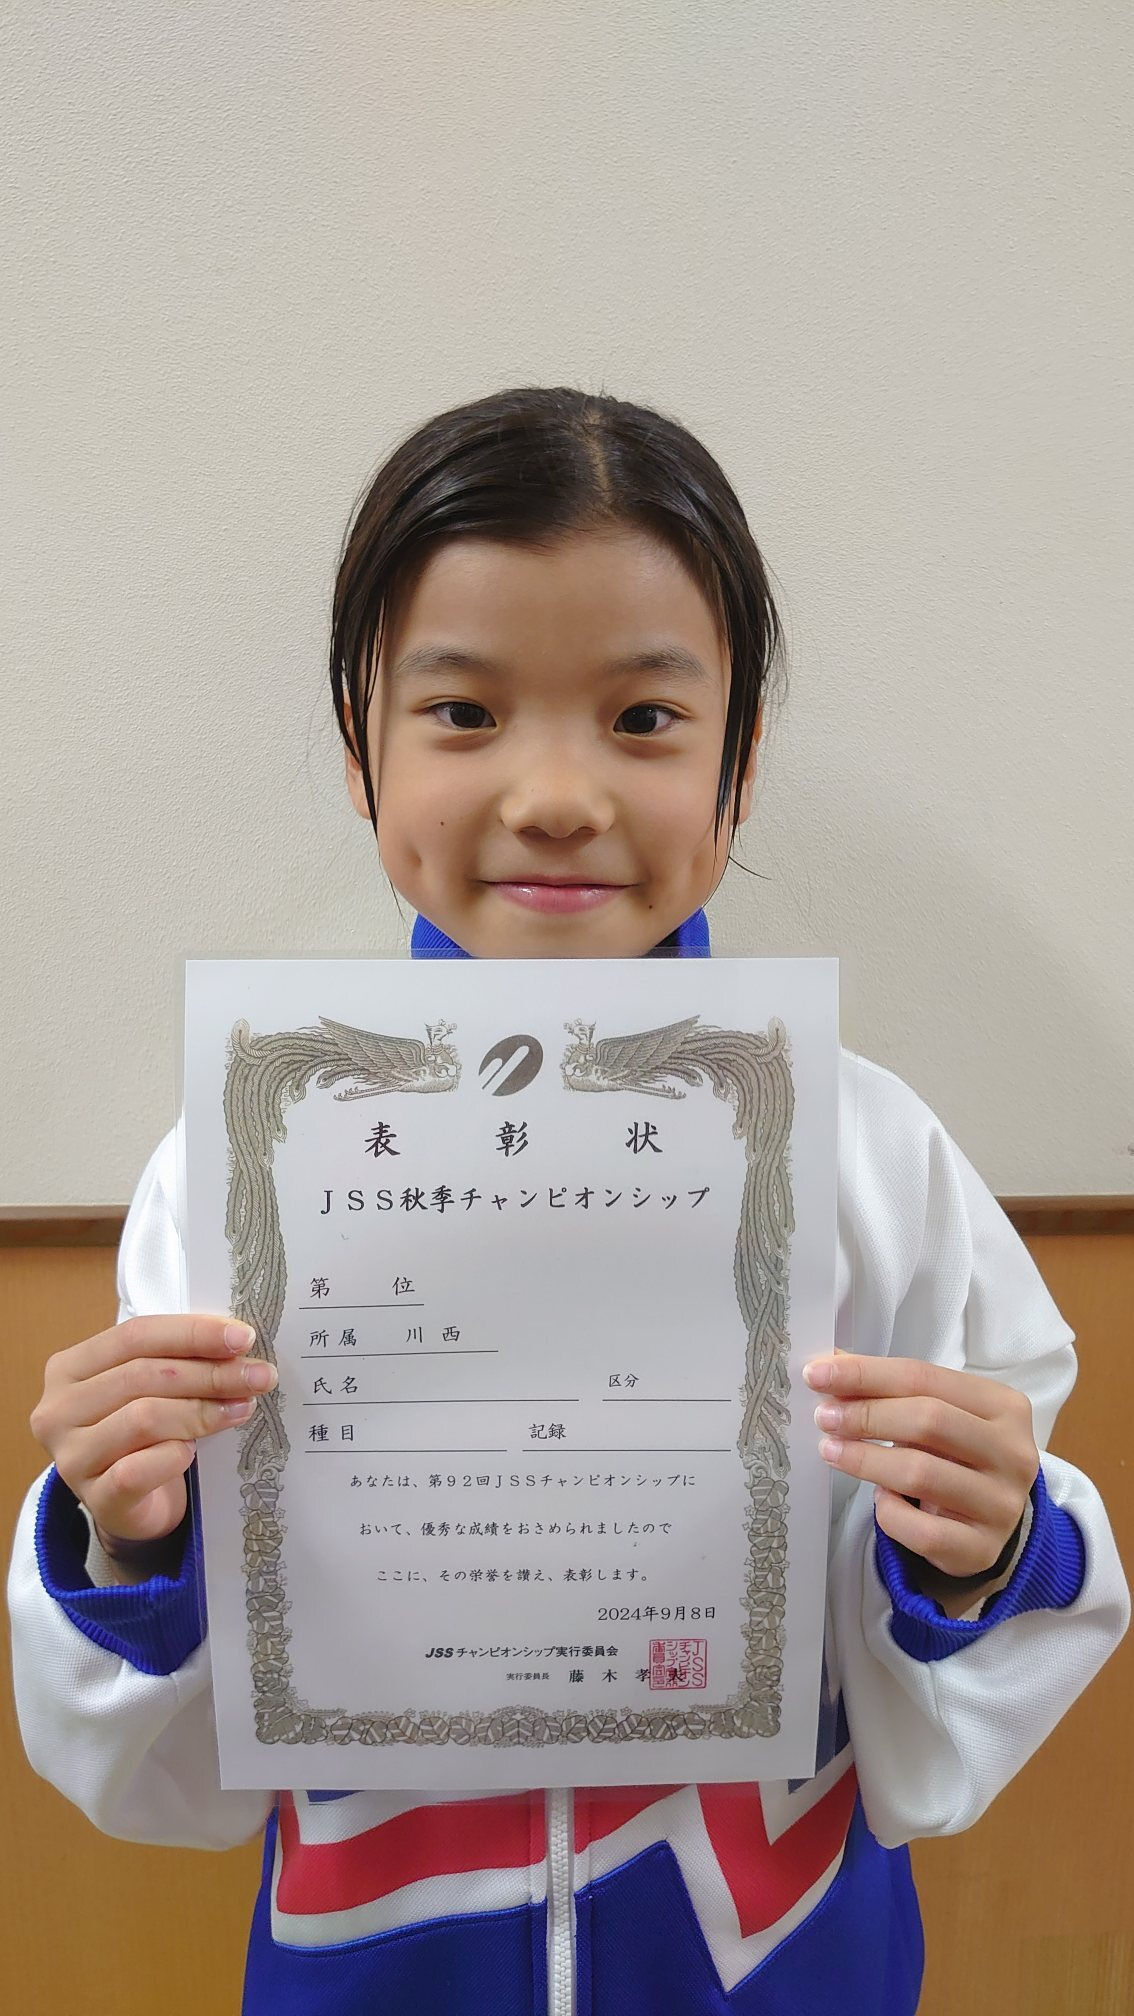 表彰状
ＪＳＳ秋季チャンピオンシップ
第　　位
所属　川西
氏名　　区分
種目　　記録
あなたは、第９２回ＪＳＳチャンピオンシップに
おいて、優秀な成績をおさめられましたので
ここに、その栄誉を讃え、表彰します。
2024年9月8日
JSSチャンピオンシップ実行委員会
実行委員長　藤木孝